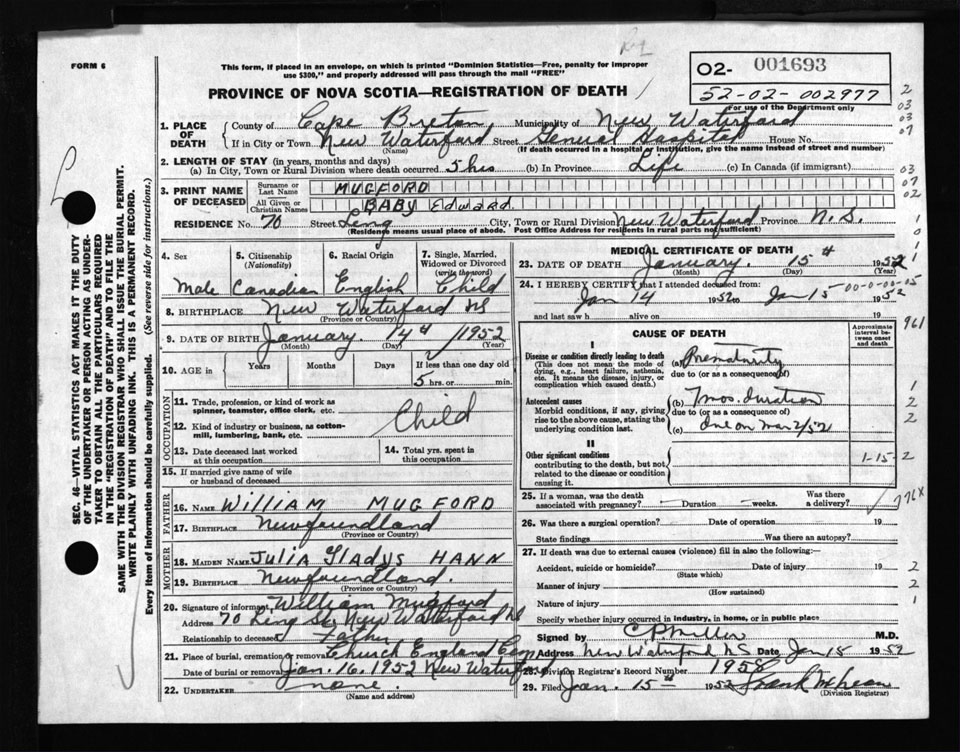 FORM 6
This form, if placed in an envelope, on which is printed "Dominion Statistics—Free, penalty for improper
use $300," and properly addressed will pass through the mail "FREE"
O2- 001693
52-02-002977
For use of the Department only
PROVINCE OF NOVA SCOTIA—REGISTRATION OF DEATH
1. PLACE OF DEATH
County of Cape Breton Municipality of New Waterford
If in City or Town New Waterford Street General Hospital House No.
(Name) (If death occurred in a hospital or institution, give the name instead of street and number)
2. LENGTH OF STAY (in years, months and days)
(a) In City, Town or Rural Division where death occurred 5 hrs (b) In Province Life (c) In Canada (if immigrant)
3. PRINT NAME OF DECEASED
Surname or Last Name MUGFORD
All Given or Christian Names BABY Edward
RESIDENCE No. 70 Street Ling City, Town or Rural Division New Waterford Province N.S.
(Residence means usual place of abode. Post Office Address for residents in rural parts not sufficient)
4. Sex 5. Citizenship (Nationality) 6. Racial Origin 7. Single, Married, Widowed or Divorced (write the word)
Male Canadian English Child
8. BIRTHPLACE New Waterford NS
(Province or Country)
9. DATE OF BIRTH January 14th 1952
(Month) (Day) (Year)
10. AGE in Years Months Days If less than one day old
5 hrs. or min.
OCCUPATION
11. Trade, profession, or kind of work as spinner, teamster, office clerk, etc.
Child
12. Kind of industry or business, as cotton-mill, lumbering, bank, etc.
13. Date deceased last worked at this occupation
14. Total yrs. spent in this occupation
15. If married give name of wife or husband of deceased
FATHER
16. NAME WILLIAM MUGFORD
17. BIRTHPLACE Newfoundland
(Province or Country)
MOTHER
18. MAIDEN NAME JULIA GLADYS HANN
19. BIRTHPLACE Newfoundland.
(Province or Country)
20. Signature of informant William Mugford
Address 70 Ling St. New Waterford NS
Relationship to deceased Father
21. Place of burial, cremation or removal Church England Cem
Date of burial or removal Jan. 16. 1952 New Waterford
22. UNDERTAKER none.
(Name and address)
MEDICAL CERTIFICATE OF DEATH
23. DATE OF DEATH January. 15th 1952
(Month) (Day) (Year)
24. I HEREBY CERTIFY that I attended deceased from:
Jan 14 1952 to Jan 15 1952
00-0-00-05
and last saw h alive on 19
CAUSE OF DEATH
Approximate interval between onset and death
I
Disease or condition directly leading to death
(This does not mean the mode of dying, e.g., heart failure, asthenia, etc. It means the disease, injury, or complication which caused death.)
(a) Prematurity
due to (or as a consequence of)
Antecedent causes
Morbid conditions, if any, giving rise to the above cause, stating the underlying condition last.
(b) 7 mos. duration
due to (or as a consequence of)
(c) due on Mar 2/52
II
Other significant conditions
contributing to the death, but not related to the disease or condition causing it.
1-15-2
25. If a woman, was the death associated with pregnancy? Duration weeks. Was there a delivery?
26. Was there a surgical operation? Date of operation 19
State findings Was there an autopsy?
27. If death was due to external causes (violence) fill in also the following:—
Accident, suicide or homicide? Date of injury 19
(State which)
Manner of injury
(How sustained)
Nature of injury
Specify whether injury occurred in industry, in home, or in public place
Signed by C P Miller M.D.
Address New Waterford NS Date Jan 15 1952
28. Division Registrar's Record Number 1958
29. Filed Jan. 15th 1952
(Division Registrar)
SEC. 46—VITAL STATISTICS ACT MAKES IT THE DUTY
OF THE UNDERTAKER OR PERSON ACTING AS UNDER-
TAKER TO OBTAIN ALL THE PARTICULARS REQUIRED
IN THE "REGISTRATION OF DEATH" AND TO FILE THE
SAME WITH THE DIVISION REGISTRAR WHO SHALL ISSUE THE BURIAL PERMIT.
WRITE PLAINLY WITH UNFADING INK. THIS IS A PERMANENT RECORD.
Every item of information should be carefully supplied. (See reverse side for instructions.)
2
03
03
07
03
07
02
1
0
1
961
1
2
2
2
776X
2
2
1